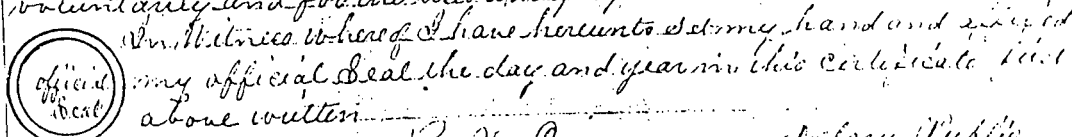 voluntarily and for the
In Witness whereof I have hereunto set my hand and affixed
official Seal
my official Seal the day and year in this certificate first
above written
Notary Public